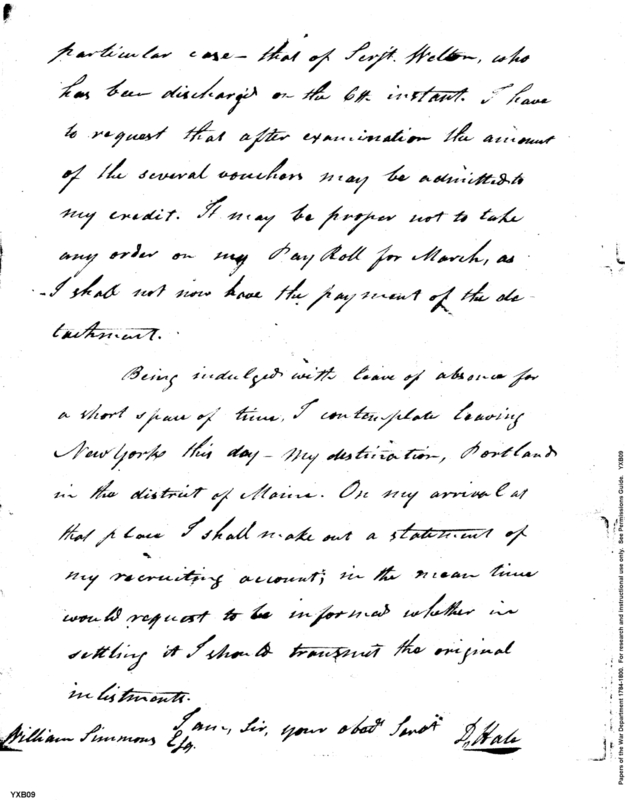 particular case – that of Serjt. Welton, who
has been discharg'd on the 6th. instant. I have
to request that after examination the amount
of the several vouchers may be admitted to
my credit. It may be proper not to take
any order on my Pay Roll for March, as
I shall not now have the payment of the de-
tachment.
Being indulged with leave of absence for
a short space of time, I contemplate leaving
New York this day – my destination, Portland
in the district of Maine. On my arrival at
that place I shall make out a statement of
my recruiting account; in the mean time
would request to be informed whether in
settling it I should transmit the original
inlistments.
I am, Sir, your obedt. Servt.
William Simmons Esq.
D. Hale
Papers of the War Department 1784-1800. For research and instructional use only. See Permissions Guide. YXB09
YXB09